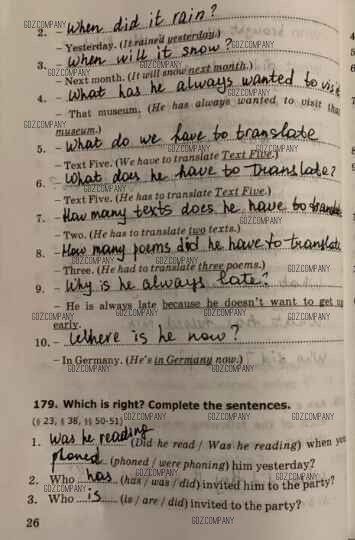 2. – When did it rain?
– Yesterday. (It rained yesterday.)
3. – When will it snow?
– Next month. (It will snow next month.)
4. – What has he always wanted to visit
– That museum. (He has always wanted to visit that
museum.)
5. – What do we have to translate
– Text Five. (We have to translate Text Five.)
6. – What does he have to translate?
– Text Five. (He has to translate Text Five.)
7. – How many texts does he have to translate
– Two. (He has to translate two texts.)
8. – How many poems did he have to translate
– Three. (He had to translate three poems.)
9. – Why is he always late?
– He is always late because he doesn't want to get up
early.
10. – Where is he now?
– In Germany. (He's in Germany now.)
179. Which is right? Complete the sentences.
(§ 23, § 38, §§ 50-51)
1. Was he reading (Did he read / Was he reading) when you
phoned (phoned / were phoning) him yesterday?
2. Who has (has / was / did) invited him to the party?
3. Who is (is / are / did) invited to the party?
26
GDZ.COMPANY